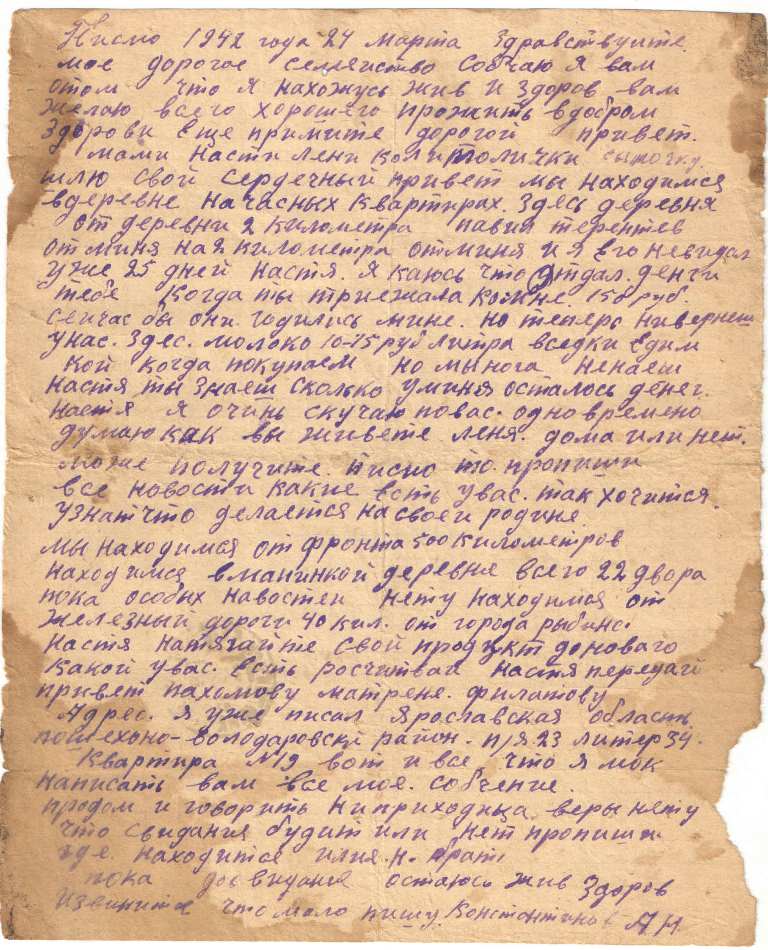 Писмо 1942 года 24 марта Здравствуите
мое дорогое семеиство Собчаю я вам
отом что я нахожусь жив и здоров вам
желаю всего хорошего прожить вдобром
Здоровя Еще примите дорогой привет.
мами Насти Лени Коли толички сыночку
шлю свой сердечный привет мы находимся
вдеревне на часных квартирах. Здесь деревня
от деревни 2 километра павил терентев
от миня на 2 километра отминя и я его невидал
уже 25 дней Настя. Я каюсь что отдал. денги
тебе Когда ты приежала комне. 150 руб.
сеичас бы они. годились мине. но теперь нивернеш
унас. здес. молоко 10-15 руб литра вседки едим
кой когда покупаем но мынога
настя ты знаеш сколько уминя осталось денег.
настя Я очинь скучаю повас. одно времено
думаю как вы живете леня. дома или нет.
може получите. писмо то. пропиши
все новости какие есть увас. так хочится.
узнат что делается на своеи родине
мы находимся от фронта 500 километров
находимся вмалинкой деревне всего 22 двора
пока особых навостеи нету находимся от
железный дороги 40 кил. от города рыбинс.
Настя натягайте свой продукт доноваго
какой увас. есть росчитваи настя передаи
привет пахомову матрене. филатову
Адрес. я уже писал ярославская область
пошехоно-володаровскй район. п/я. 23 литер 34.
Квартира №19 вот и все что я мок
написать вам все мое. собчение.
продом и говорить ниприходица. веры нету
что свидания будит или нет пропиши
где. находится илия. н. брат
пока досвидания остаюсь жив здоров
извинитя что мало пишу Константинов А Н